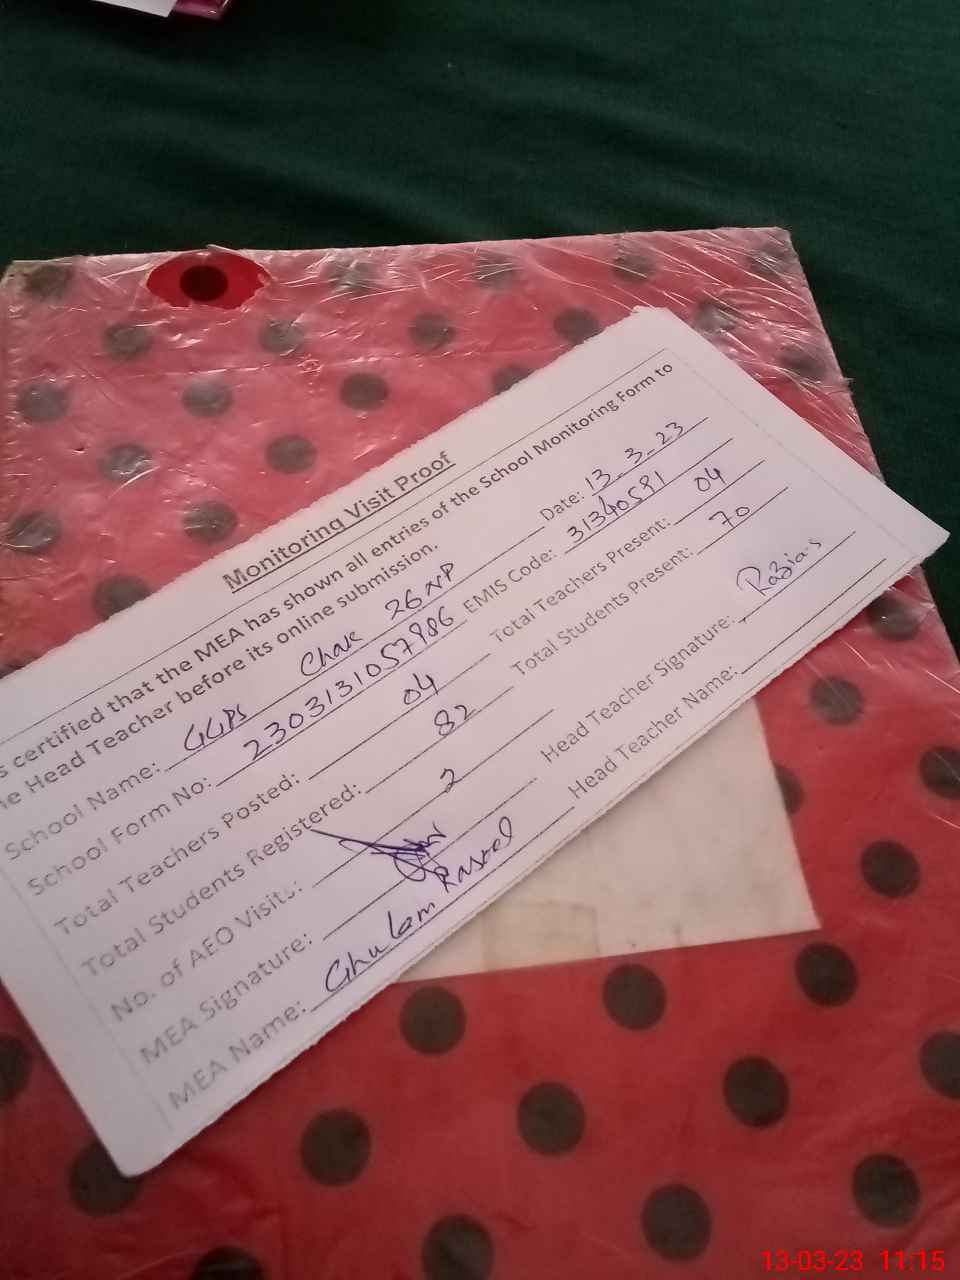 Monitoring Visit Proof
s certified that the MEA has shown all entries of the School Monitoring Form to
e Head Teacher before its online submission.
Date: 13-3-23
School Name: GGPS Chak 26 NP EMIS Code: 31340591
School Form No: 2303131057986 Total Teachers Present: 04
Total Teachers Posted: 04 Total Students Present: 70
Total Students Registered: 82
No. of AEO Visits: 2 Head Teacher Signature: Razia.s
MEA Signature: Head Teacher Name:
MEA Name: Ghulam Rasool
13-03-23 11:15